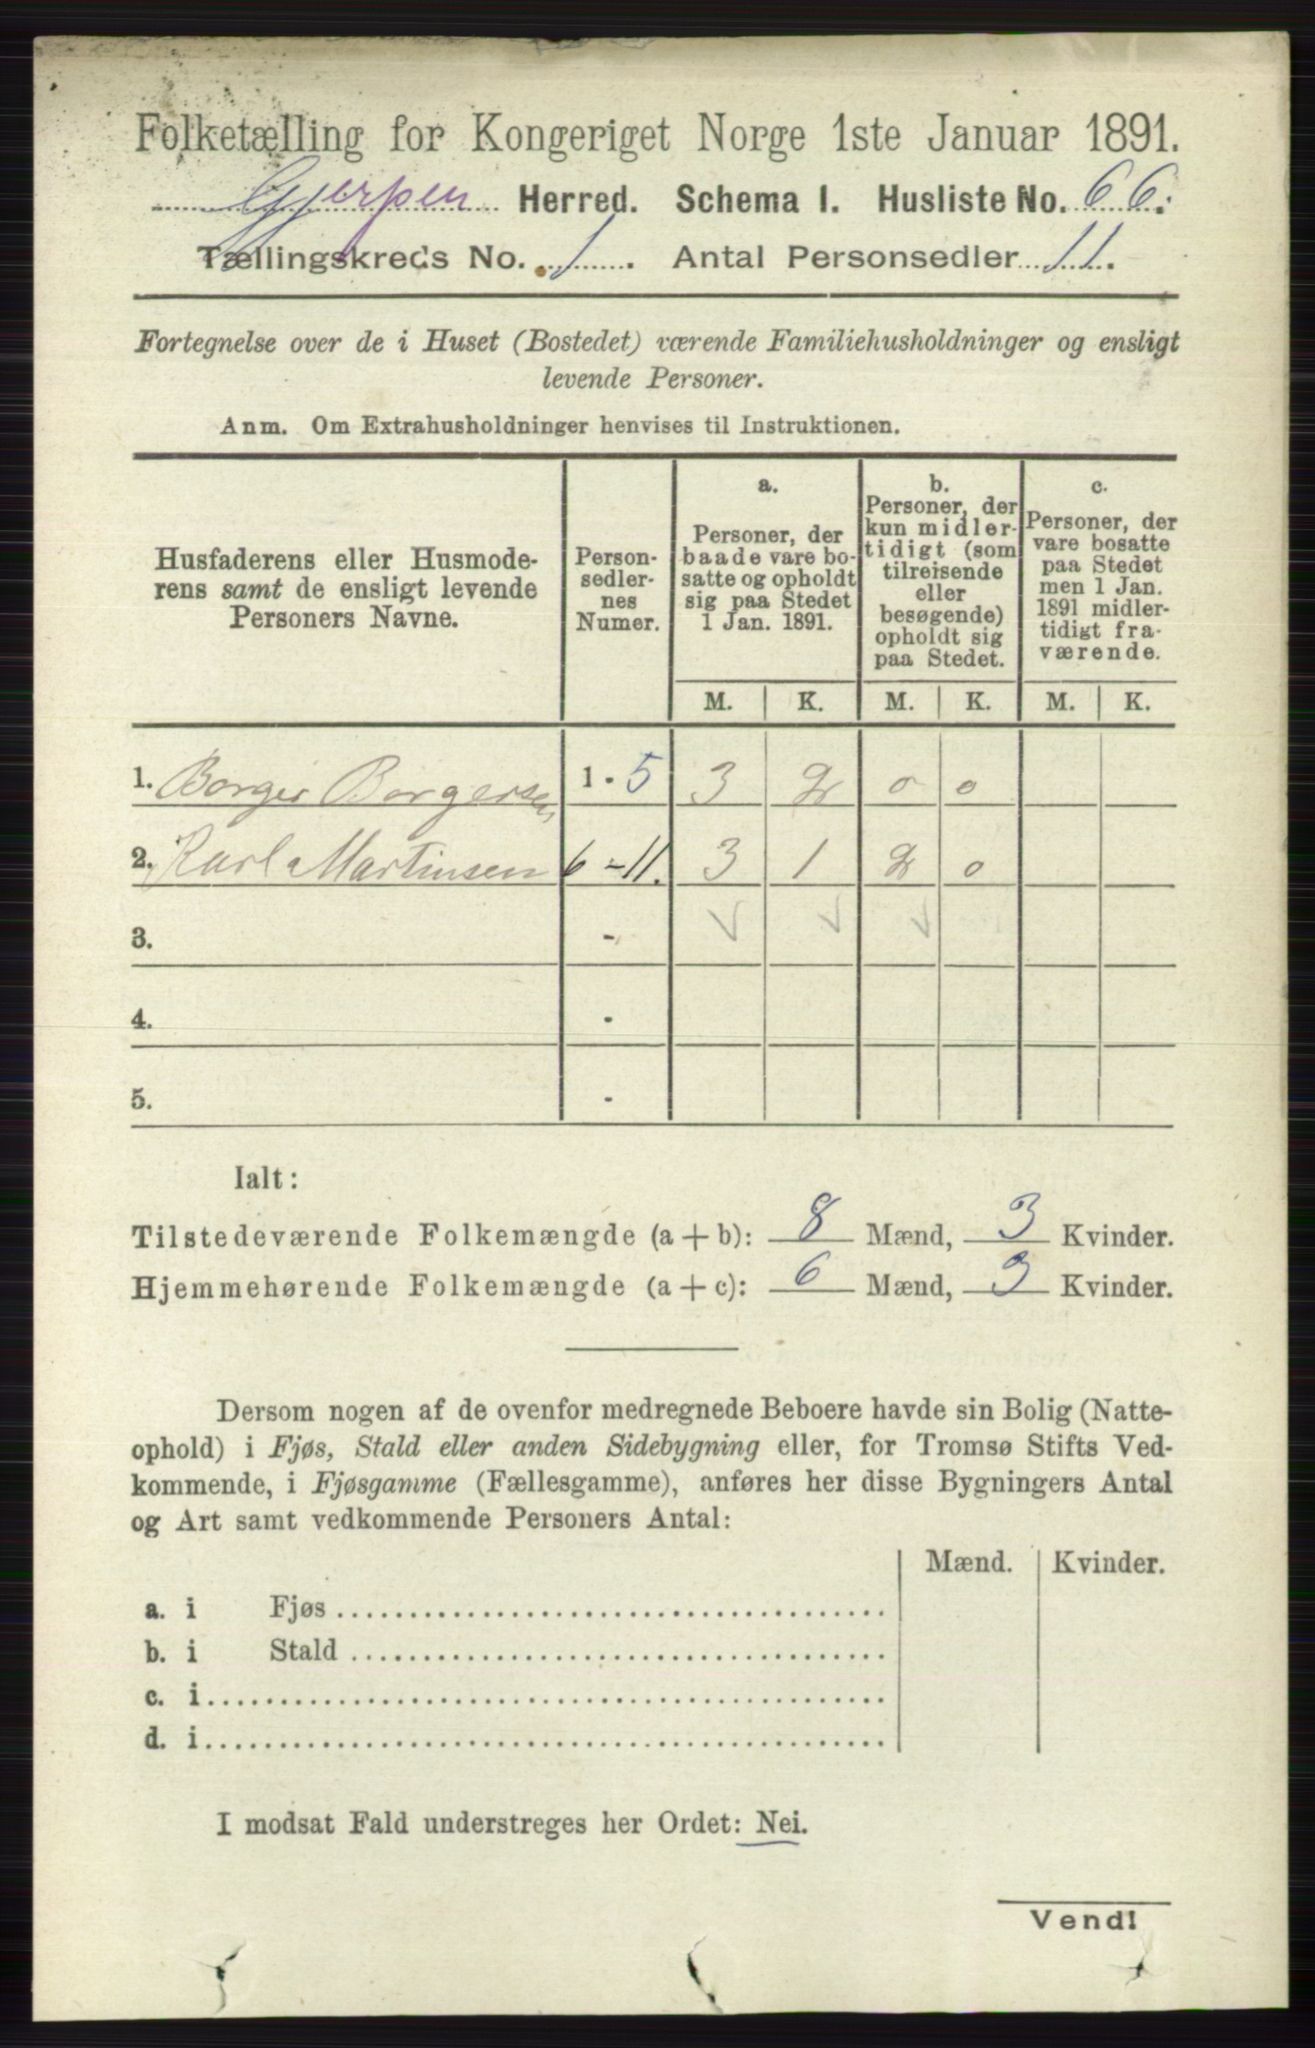 Folketælling for Kongeriget Norge 1ste Januar 1891.
Gjerpen Herred. Schema I. Husliste No. 66.
Tællingskreds No. 1. Antal Personsedler 11.
Fortegnelse over de i Huset (Bostedet) værende Familiehusholdninger og ensligt
levende Personer.
Anm. Om Extrahusholdninger henvises til Instruktionen.
Husfaderens eller Husmode-
rens samt de ensligt levende
Personers Navne.
Person-
sedler-
nes
Numer.
a.
Personer, der
baade vare bo-
satte og opholdt
sig paa Stedet
1 Jan. 1891.
b.
Personer, der
kun midler-
tidigt (som
tilreisende
eller
besøgende)
opholdt sig
paa Stedet.
c.
Personer, der
vare bosatte
paa Stedet
men 1 Jan.
1891 midler-
tidigt fra-
værende.
M. K. M. K. M. K.
1. Borger Borgersen 1 - 5 3 2 0 0
2. Karl Martinsen 6 - 11. 3 1 2 0
3. -
4. -
5. -
Ialt:
Tilstedeværende Folkemængde (a + b): 8 Mænd, 3 Kvinder.
Hjemmehørende Folkemængde (a + c): 6 Mænd, 3 Kvinder.
Dersom nogen af de ovenfor medregnede Beboere havde sin Bolig (Natte-
ophold) i Fjøs, Stald eller anden Sidebygning eller, for Tromsø Stifts Ved-
kommende, i Fjøsgamme (Fællesgamme), anføres her disse Bygningers Antal
og Art samt vedkommende Personers Antal:
Mænd. Kvinder.
a. i Fjøs
b. i Stald
c. i
d. i
I modsat Fald understreges her Ordet: Nei.
Vend!